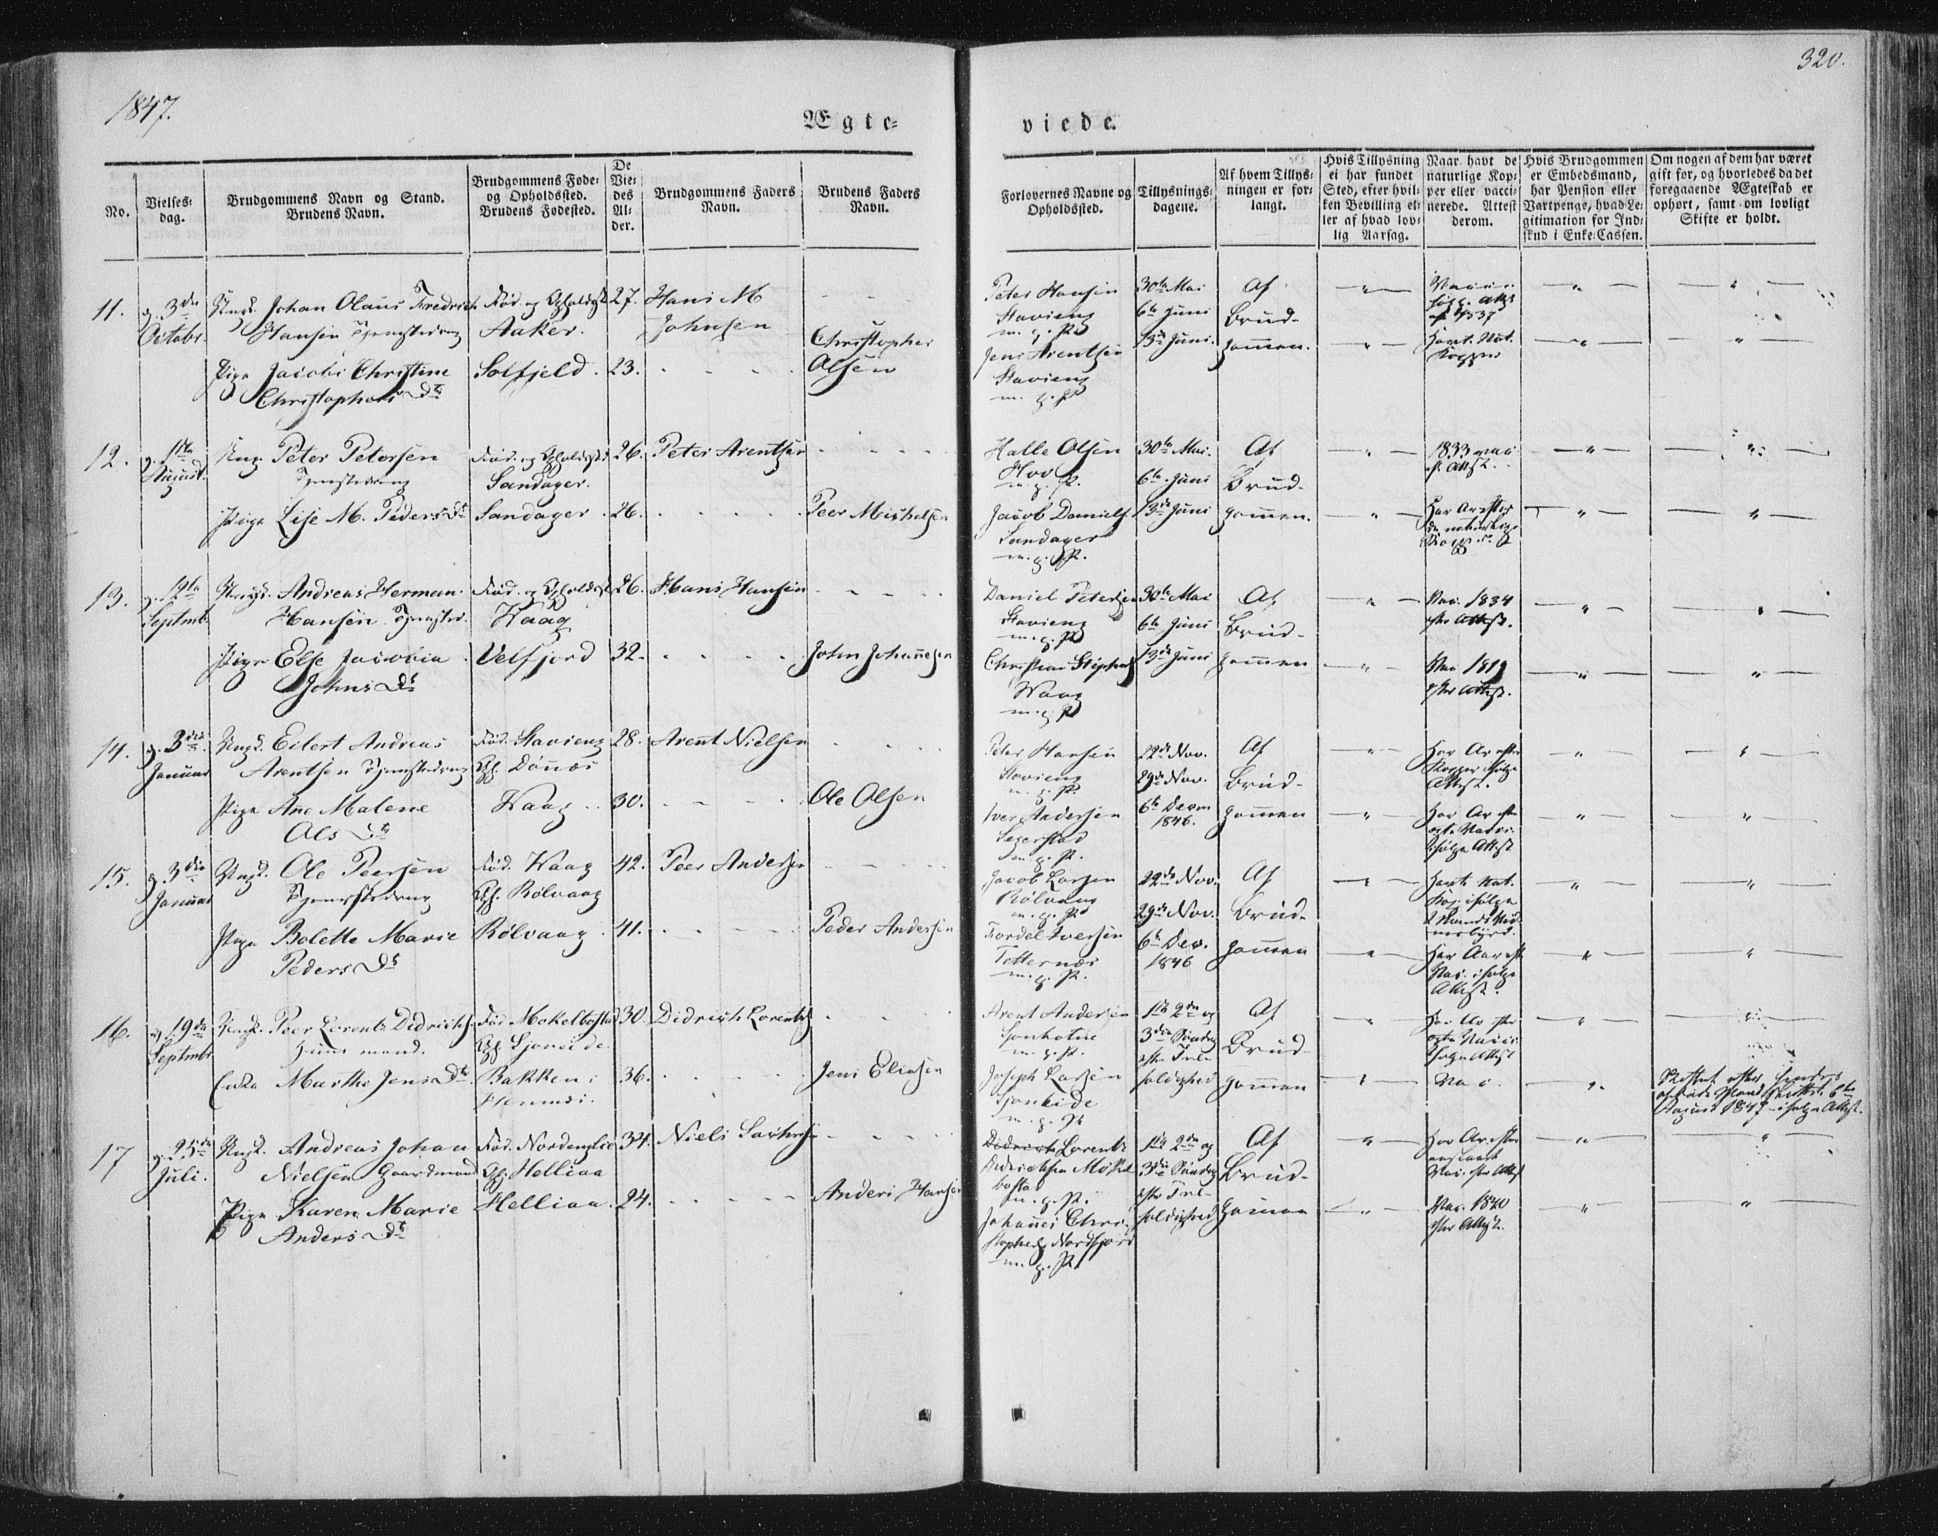 1847.
320.
Ægte-
viede.
No.
Vielses-
dag.
Brudgommens Navn og Stand.
Brudens Navn.
Brudgommens Føde-
og Opholdssted.
Brudens Fødested.
De
Vie-
des
Al-
der.
Brudgommens Faders
Navn.
Brudens Faders
Navn.
Forlovernes Navne og
Opholdssted.
Tillysnings-
dagene.
Af hvem Tillys-
ningen er for-
langt.
Hvis Tillysning
ei har fundet
Sted, efter hvil-
ken Bevilling el-
ler af hvad lov-
lig Aarsag.
Naar havt de
naturlige Kop-
per eller vacci-
nerede. Attest
derom.
Hvis Brudgommen
er Embedsmand,
har Pension eller
Vartpenge, hvad Le-
gitimation for Ind-
skud i Enke-Cassen.
Om nogen af dem har været
gift før, og hvorledes da det
foregaaende Ægteskab er
ophørt, samt om lovligt
Skifte er holdt.
11.
3die
Octobr.
Ungk. Johan Olaus Fredrich
Hansen Tjenestedreng
Pige Jacobi Christine
Christophers Dtr
Fød. og Opholdsst.
Aaker.
Solfjeld.
27.
23.
Hans M
Johnsen
Christopher
Olsen
Peter Hansen
Stavieng
m. p. P.
Jens Arentsen
Stavieng
m. p. P.
30te Mai
6te Juni
13de Juni.
Af
Brud-
gommen.
1837
havt. Nat.
Kopper
12.
1ste
August.
Ung. Peter Petersen
Tjenestedreng
Pige Lise M. Peders Dtr
Fød. og Opholdsst.
Sandager.
Sandager.
26.
26.
Peter Arentsen
Peer Michelsen
Halle Olsen
Hov
m. p. P.
Jacob Daniels.
Sandager
m. p. P.
30te Mai.
6te Juni
13de Juni
Af
Brud-
gommen.
1833
Attest.
13.
12te
Septmb.
Ungk. Andreas Herman
Hansen. Tjenestedr.
Pige Else Jacobia
Johns Dtr
Fød. og Opholdsst.
Waag
Velfjord
26.
32.
Hans Hansen
John Johannesen
Daniel Petersen
Stavieng
m. p. P.
Christian Stephens.
Waag
m. p. P.
30te Mai
6te Juni
13de Juni
Af
Brud-
gommen
Vac. 1834
efter Attest.
Vac.
efter Attest.
14.
3die
Januar
Ungk. Eilert Andreas
Arentsen Tjenestedreng
Pige Ane Malene
Ols Dtr
Fød. Stavieng
Oph. Dønnes
Waag
28.
30.
Arent Nielsen
Ole Olsen
Peter Hansen
Stavieng
m. p. P.
Iver Andersen
Segerstad
m. p. P.
22de Nov.
29de Nov.
6te Decm
1846.
Af
Brud-
gommen
Attest.
ifølge Attest
15.
3die
Januar
Ungk. Ole Peersen
Tjenestedreng
Pige Bolette Marie
Peders Dtr
Fød. Waag
Oph. Rølvaag
Rølvaag.
42.
41.
Peer Andersen
Peder Andersen
Jacob Larsen
Rølvaag
m. p. P.
Tordel Iversen
m. p. P.
22de Nov.
29de Nov.
6te Dec.
1846
Af
Brud-
gommen
Havt. Nat.
Kop. ifølge
Vac. ifølge
Attest.
16.
19de
Septmbr
Ungk. Peer Lorents Didrichs.
Enke Marthe Jens Dtr
Fød. Mekelbostad
Oph. Sjoneide
Bakken i
30.
36.
Didrich Lorents
Jens Eliasen
Arent Andersen
m. p. P.
Joseph Larsen
Sjoneide
m. p. P.
1ste 2den og
3die Søndag
efter Tre-
foldighed
Af
Brud-
gommen
ifølge Attest
Vac.
ifølge Attest.
17
25de
Juli.
Ungk. Andreas Johan
Nielsen Gaardmand
Pige Karen Marie
Anders Dtr
Fød. Nordenglie
Oph. Helliaa
Helliaa.
34.
24.
Anders Hansen
Didrich Lorents
m. p. P.
Johannes Chri-
stophers. Nordfjord
m. p. P.
1ste 2den og
3die Søndag
efter Tre-
foldighed
Af
Brud-
gommen
Vac. efter Attest
Vac. 1840
efter Attest.